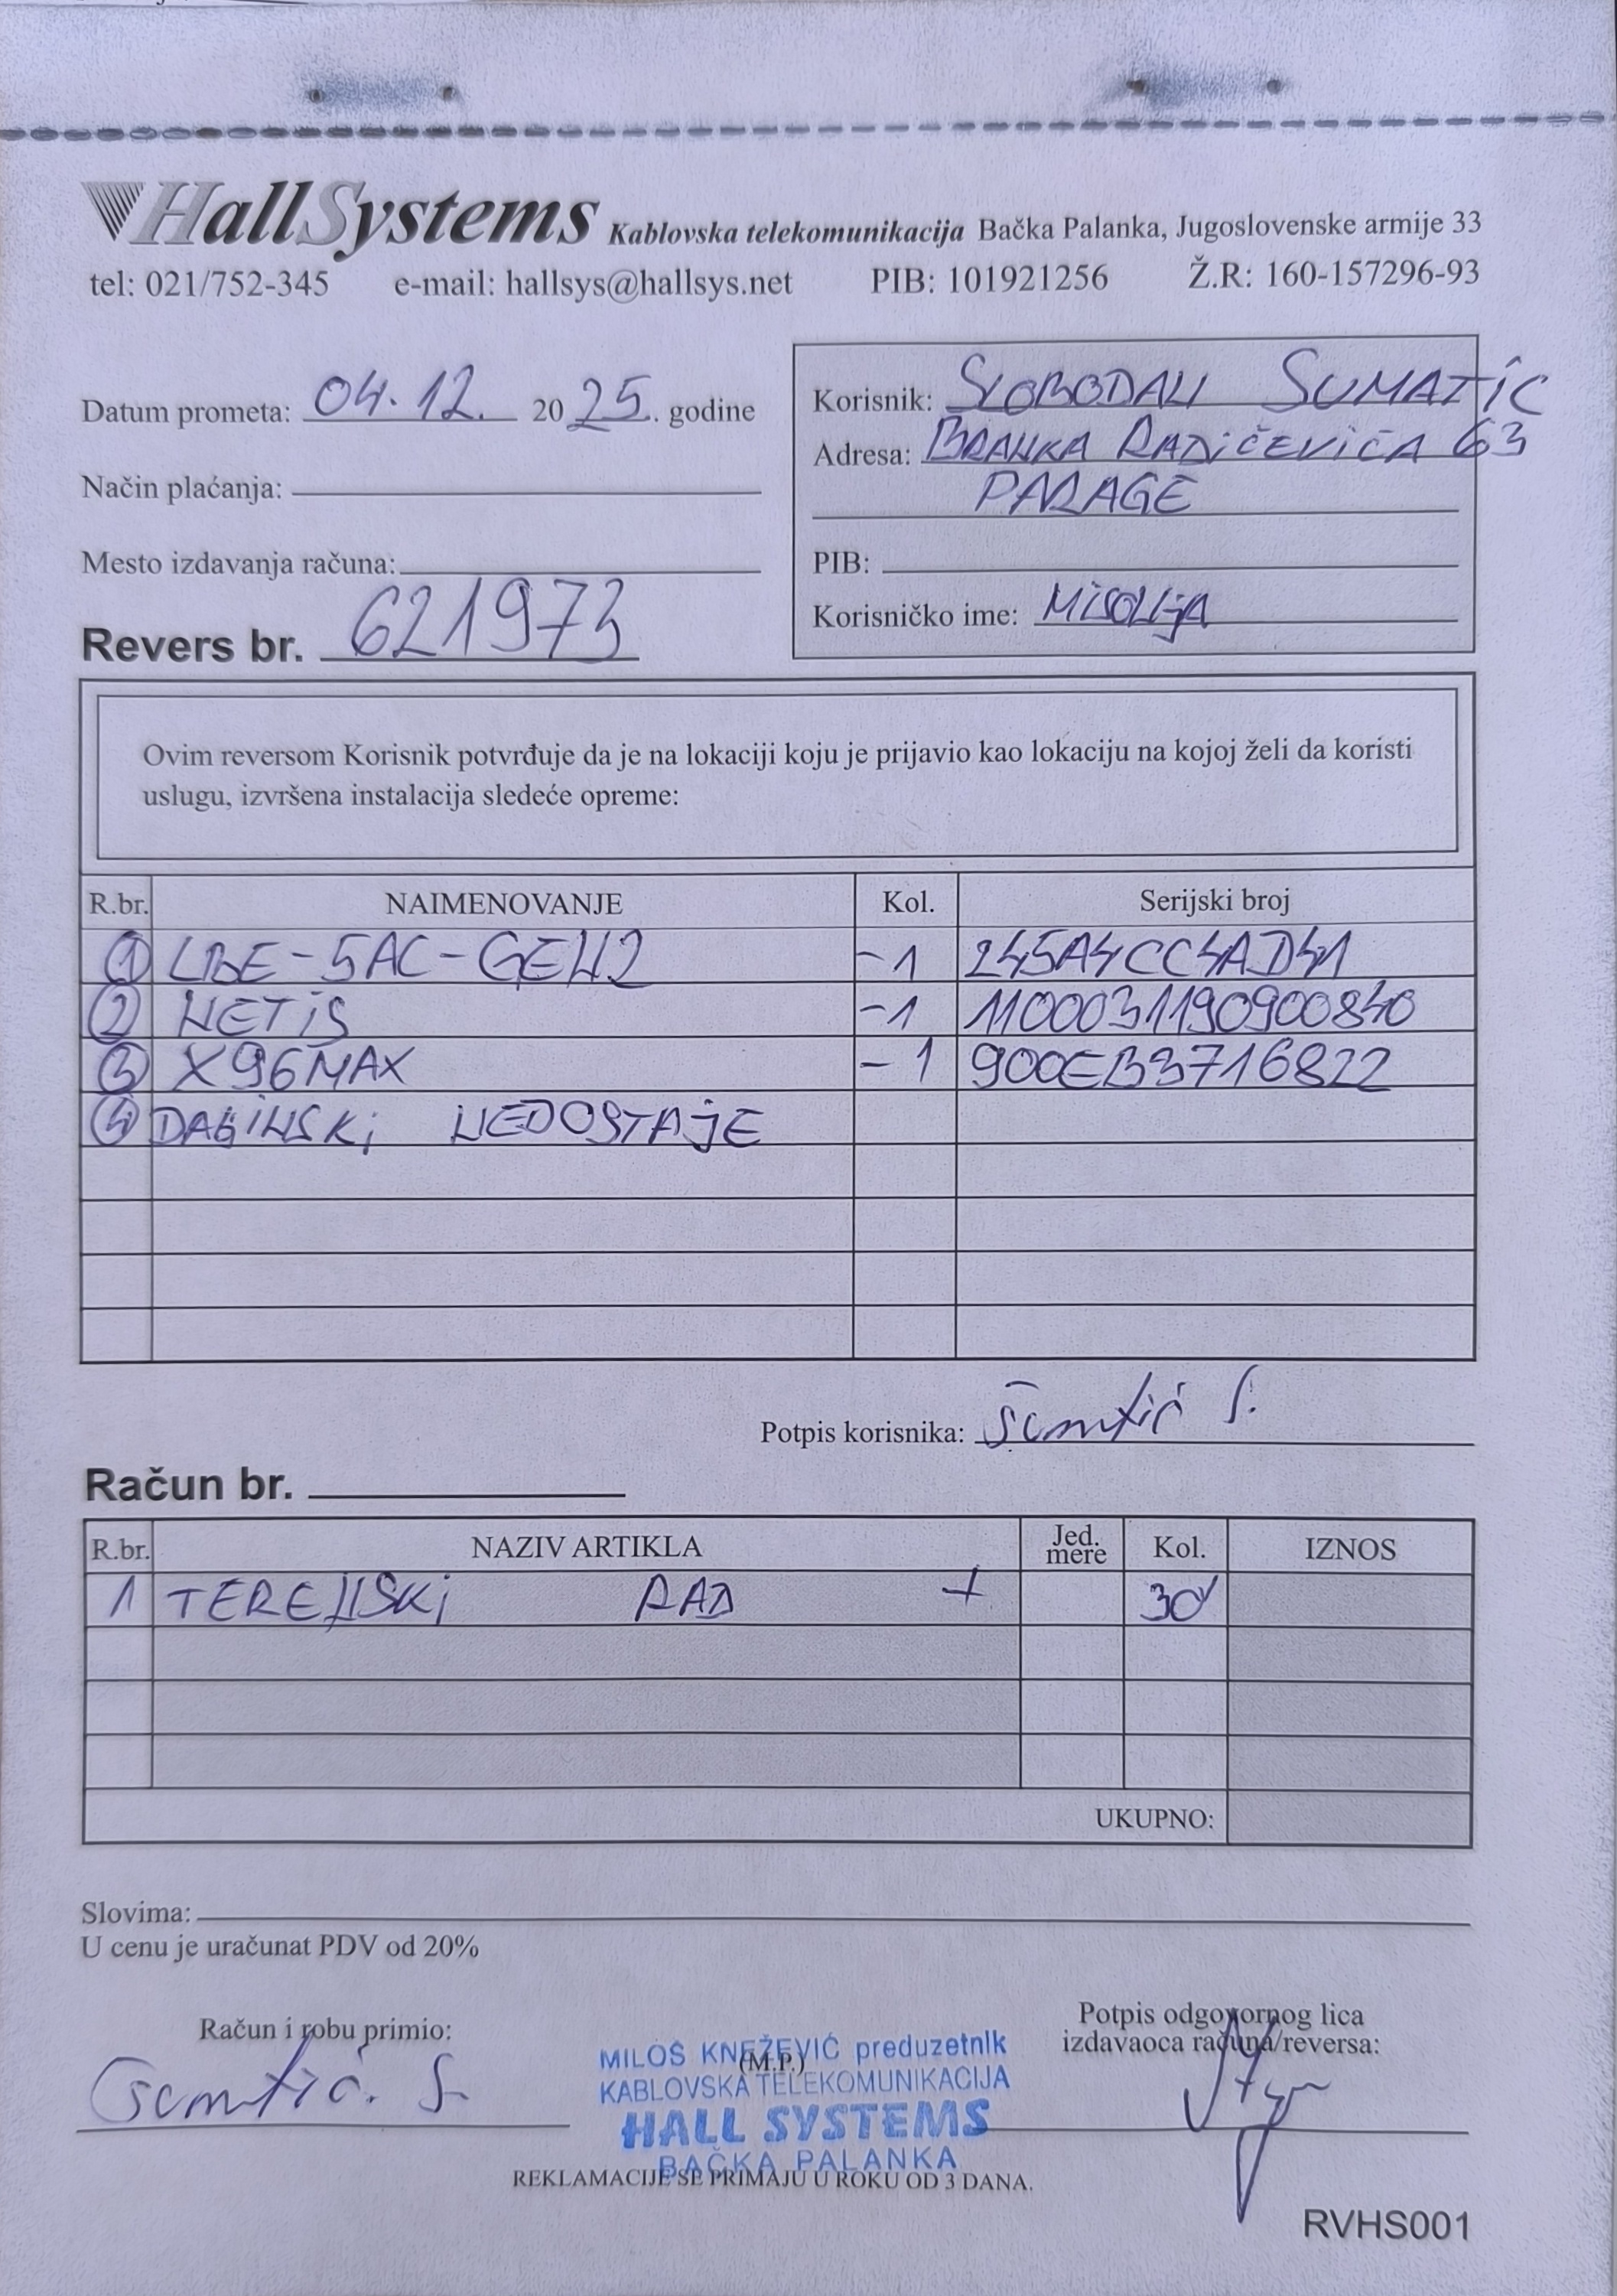 HallSystems Kablovska telekomunikacija Bačka Palanka, Jugoslovenske armije 33
tel: 021/752-345 e-mail: hallsys@hallsys.net PIB: 101921256 Ž.R: 160-157296-93
Datum prometa: 04.12. 2025. godine
Način plaćanja:
Mesto izdavanja računa:
Revers br. 621973
Korisnik: SLOBODAN SUMATIĆ
Adresa: BRANKA RADIČEVIĆA 63
PARAGE
PIB:
Korisničko ime:
Ovim reversom Korisnik potvrđuje da je na lokaciji koju je prijavio kao lokaciju na kojoj želi da koristi
uslugu, izvršena instalacija sledeće opreme:
R.br. NAIMENOVANJE Kol. Serijski broj
1 LBE-5AC-GEN2 -1 245A4CC4AD41
2 NETIS -1 1100031190900840
3 X96MAX -1 900EB3716822
4 DALJINSKI NEDOSTAJE
Potpis korisnika:
Račun br.
R.br. NAZIV ARTIKLA Jed. mere Kol. IZNOS
1 TERENSKI RAD + 30'
UKUPNO:
Slovima:
U cenu je uračunat PDV od 20%
Račun i robu primio:
Potpis odgovornog lica
izdavaoca računa/reversa:
(M.P.)
MILOŠ KNEŽEVIĆ preduzetnik
KABLOVSKA TELEKOMUNIKACIJA
HALL SYSTEMS
BAČKA PALANKA
REKLAMACIJE SE PRIMAJU U ROKU OD 3 DANA.
RVHS001